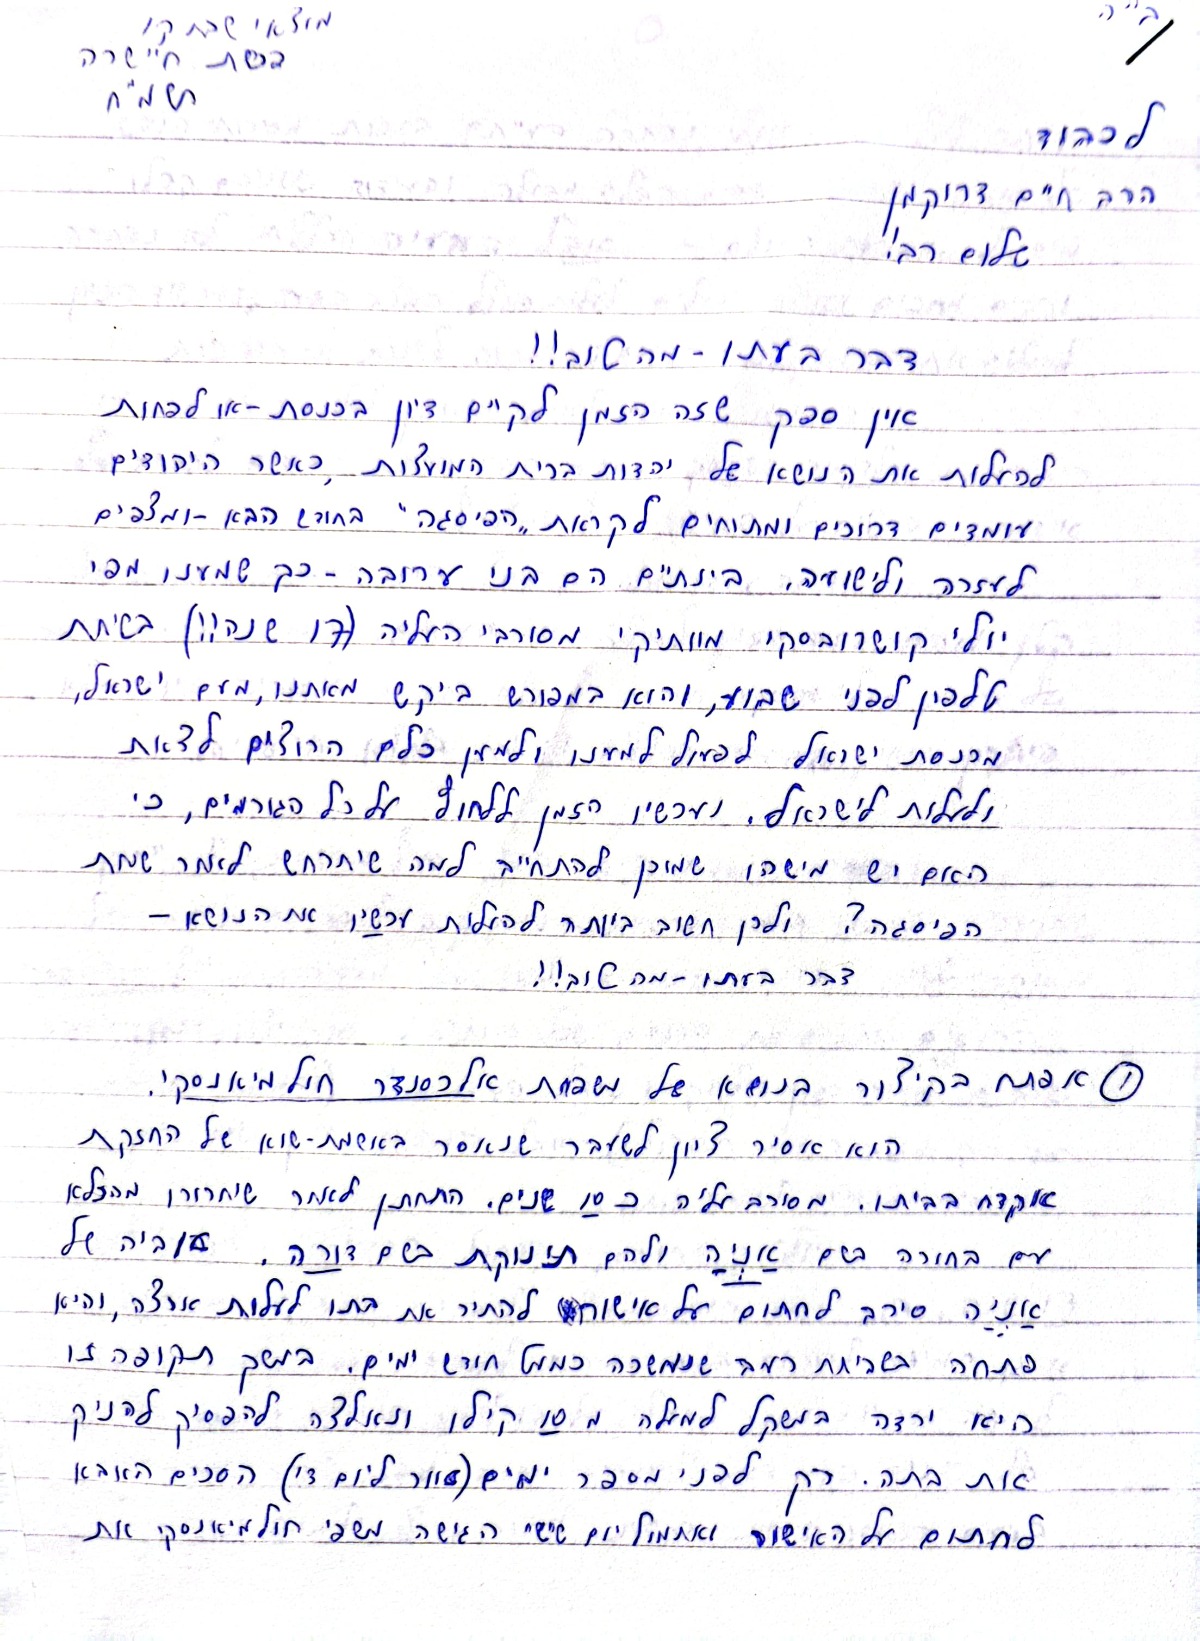 ב"ה
מוצאי שבת קו'
פרשת חיי שרה
תשמ"ח
לכבוד
הרב חיים דרוקמן
שלום רב!
דבר בעתו - מה טוב!!
אין ספק שזה הזמן לקיים דיון בכנסת - או לפחות
להעלות את הנושא של יהדות ברית המועצות, כאשר היהודים
עומדים דרוכים ומתוחים לקראת "הפיסגה" בחודש הבא - ומצפים
לעזרה ולישועה. בינתיים הם בני ערובה - כך שמענו מפי
יולי קושרובסקי מוותיקי מסורבי העליה (17 שנה!!) בשיחת
טלפון לפני שבוע, והוא במפורש ביקש מאתנו, מעם ישראל,
מכנסת ישראל לפעול למענו ולמען כלם הרוצים לצאת
ולעלות לישראל. ועכשיו הזמן ללחוץ על כל הגורמים, כי
האם יש מישהו שמוכן להתחייב למה שיתרחש לאחר שמחת
הפיסגה? ולכן חשוב ביותר להעלות עכשיו את הנושא -
דבר בעתו - מה טוב!!
① אפתח בקיצור בנושא של משפחת אלכסנדר חולמיאנסקי.
הוא אסיר ציון לשעבר שנאסר באשמת-שוא של החזקת
אקדח בביתו. מסורב עליה כ 10 שנים. התחתן לאחר שיחרורו מהכלא
עם בחורה בשם אַנְיָה ולהם תינוקת בשם דורה. אביה של
אַנְיָה סירב לחתום על אישור להתיר את בתו לעלות ארצה, והיא
פתחה בשביתת רעב שנמשכה כמעט חודש ימים. במשך תקופה זו
היא ירדה במשקל למעלה מ 10 קילו ונאלצה להפסיק להניק
את בתה. רק לפני מספר ימים (אור ליום ד') הסכים האבא
לחתום על האישור ואתמול יום שישי הגישה משפ' חולמיאנסקי את